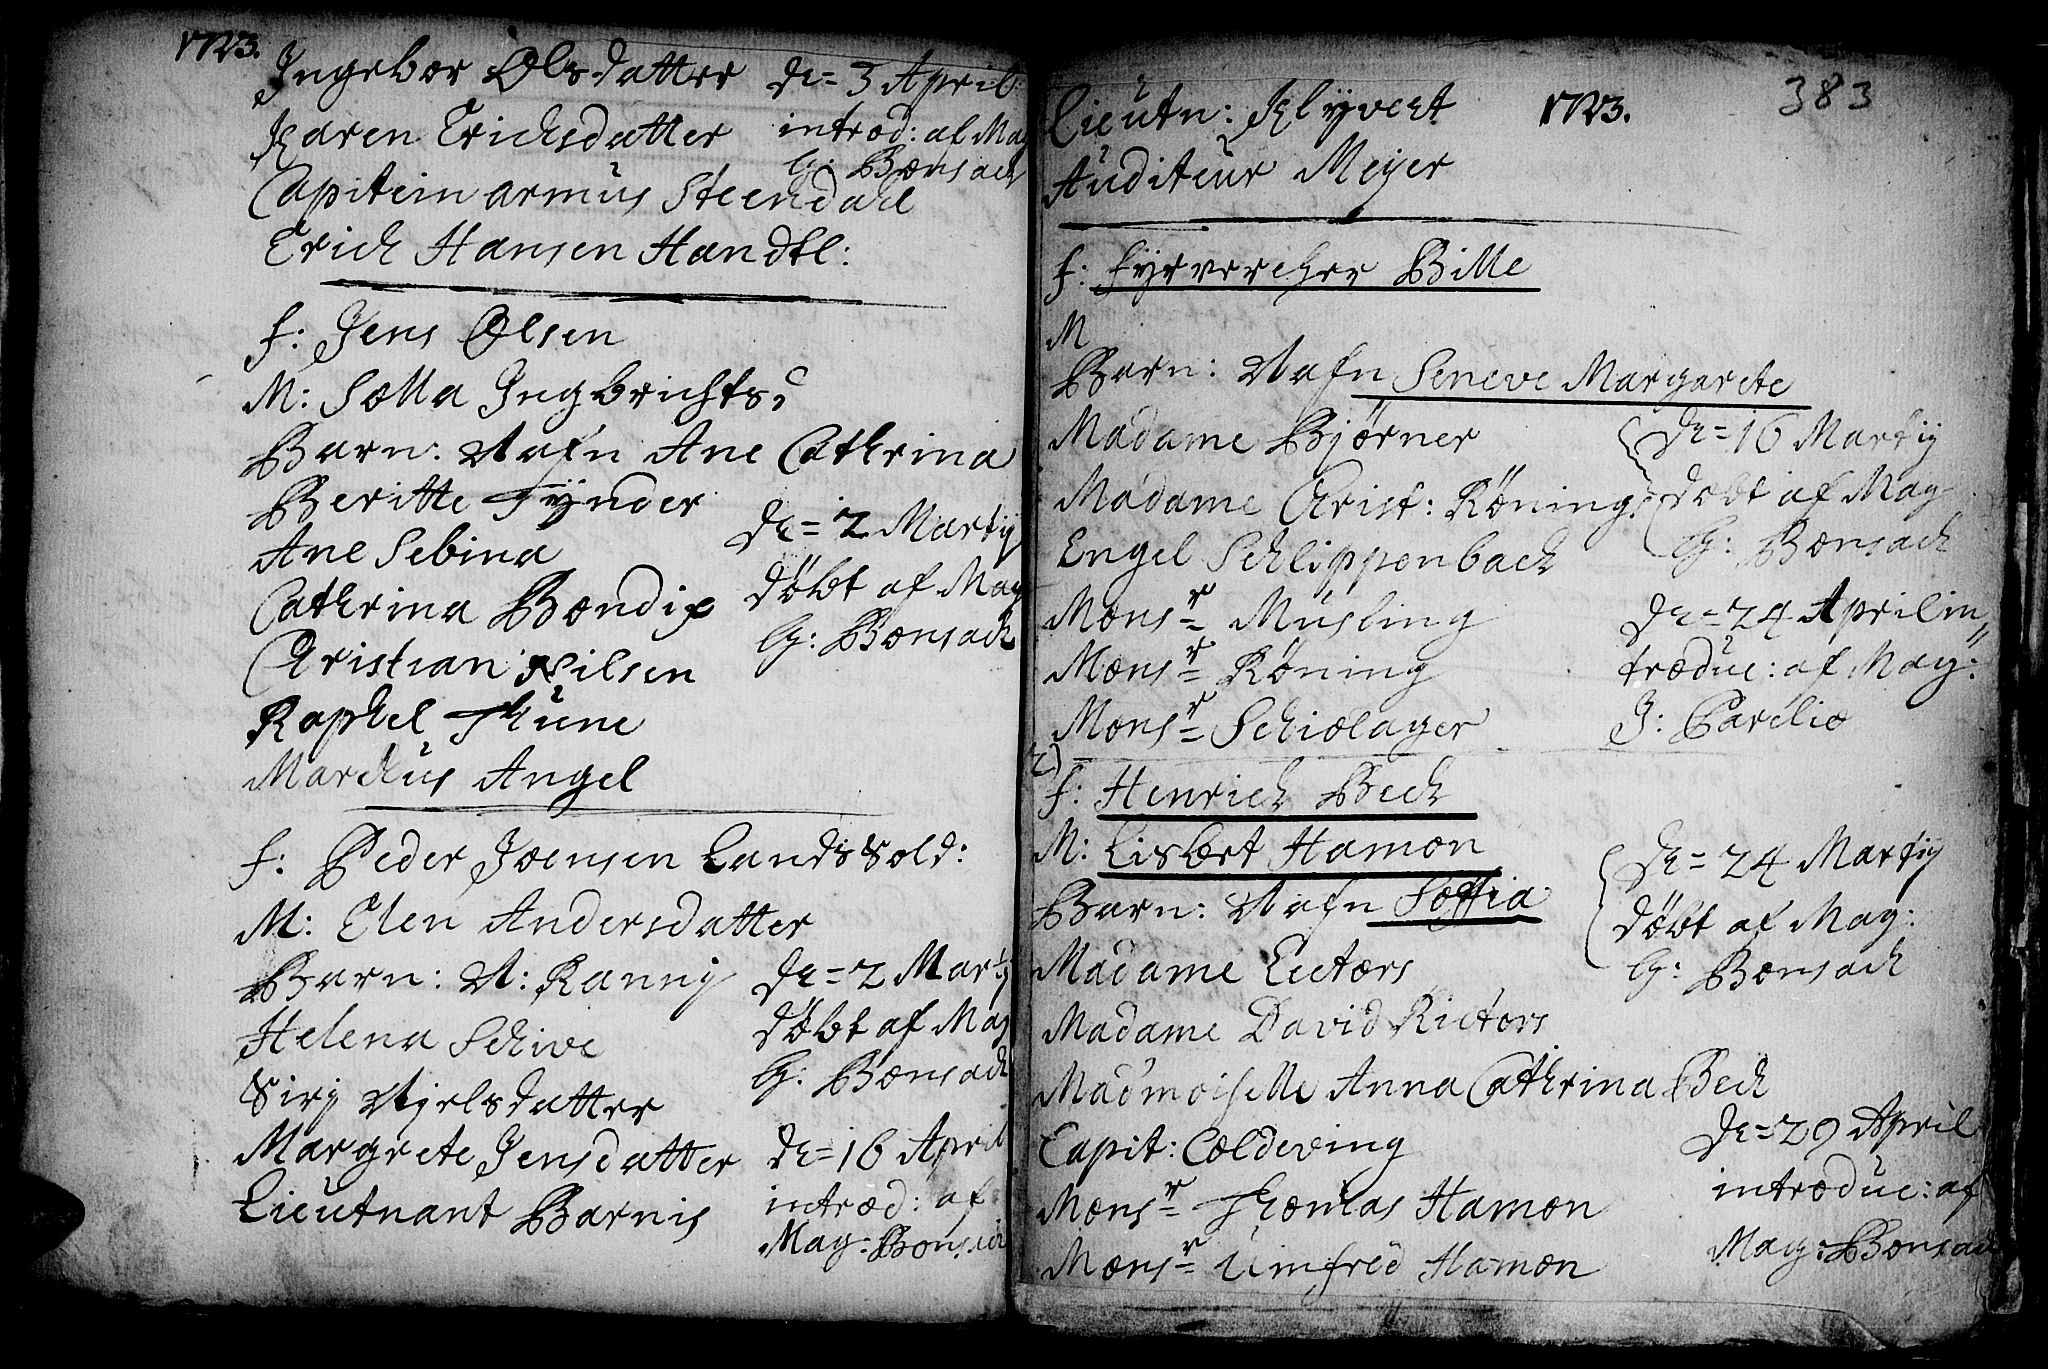 1723.
Ingebor Olsdatter
Karen Erichsdatter
Capitein armus Steendahl
Erich Hansen Handtl:
De= 3 April
introd: af Mag
G: Bonsach
f: Jens Olsen
M: Solla Ingbrichts
Barn: Nafn Ane Cathrina
Beritte Tÿnder
Ane Sebina
Cathrina Bondix
Christian Nilsen
Raphel Thune
Marchus Angel
De= 2 Martij
döbt af Mag
G: Bonsach
f: Peder Joensen Landssold:
M: Elen Andersdatter
Barn: N: Ranni
Helena Schive
Siri Nielsdatter
Margrete Jensdatter
Lieutnant Barnis
De= 2 Martij
döbt af Mag
G: Bonsach
De= 16 April
introd: af
Mag: Bonsach
383
1723.
Lieutn: Klÿvert
Auditeur Meijer
f: Fyrvercher Bille
M
Barn: Nafn Seneve Margarete
Madame Bjørner
Madame Christ: Røning
Engel Schlippenbach
Monsr Musling
Monsr Røning
Monsr Schiolager
De= 16 Martij
döbt af Mag
G: Bonsach
De= 24 April in
troduc: af Mag:
J: Carelio
2)
f: Henrich Bech
M: Lisbet Hamon
Barn: Nafn Soffia
Madame Lectors
Madame David Rictors
Madmoiselle Anna Cathrina Bech
Capit: Coldeving
Monsr Thomas Hamon
Monsr Umfred Hamon
De= 24 Martij
döbt af Mag:
G: Bonsach
De= 29 April
introduc: af
Mag: Bonsach